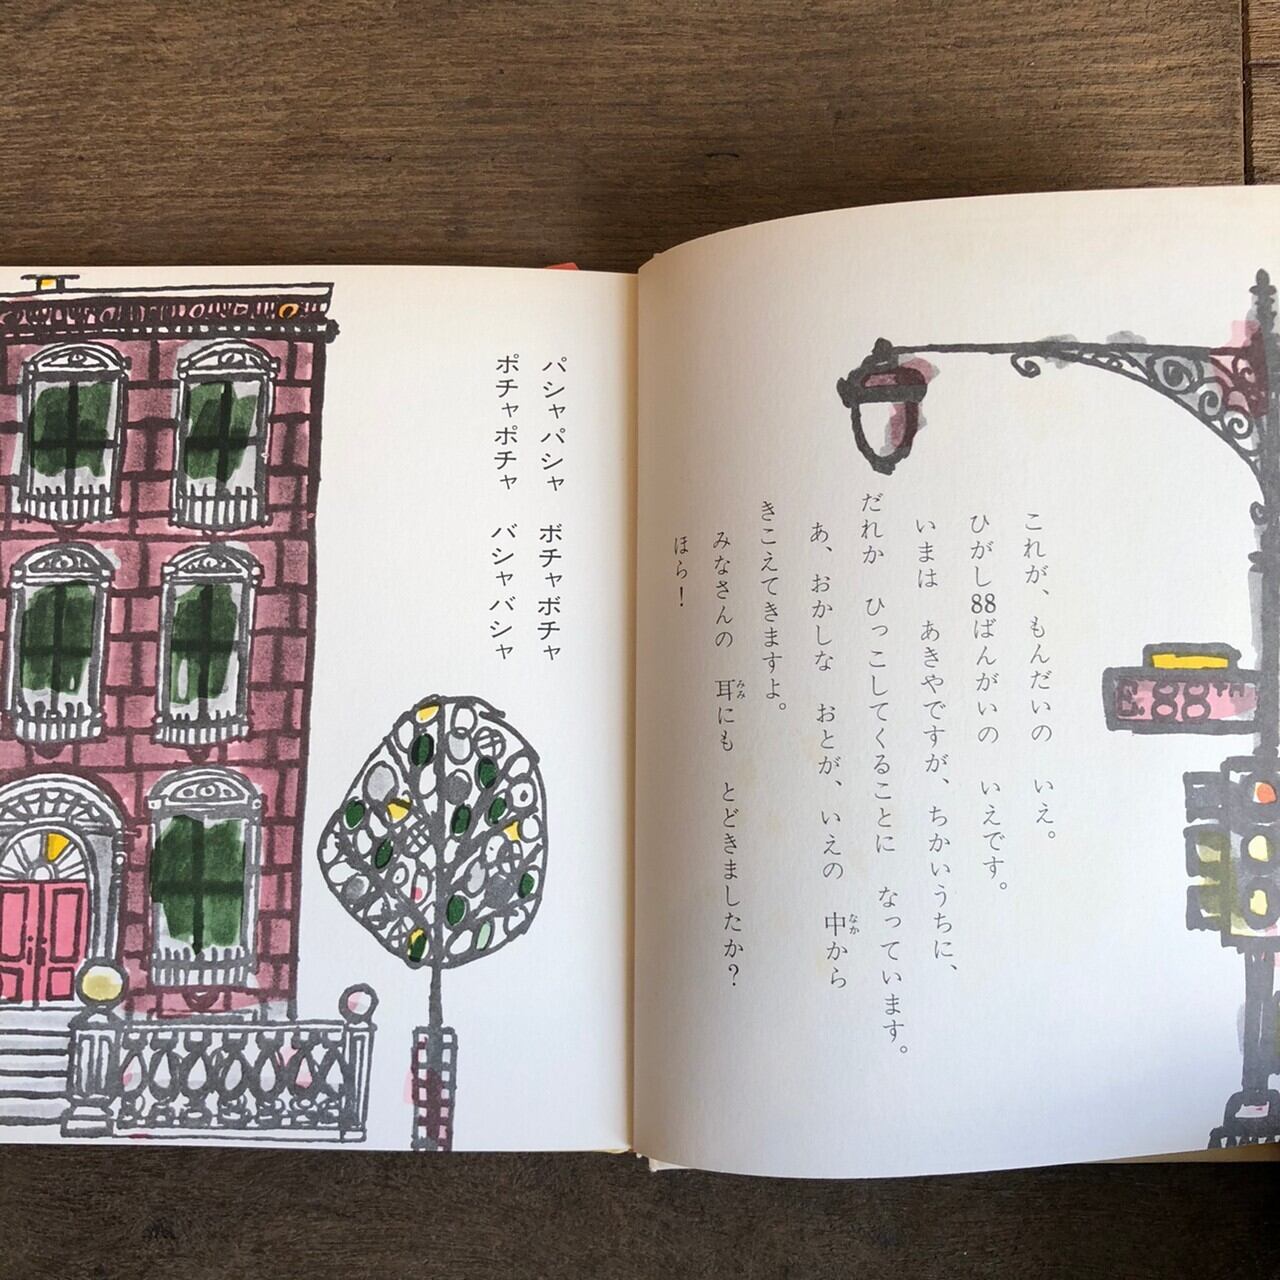 これが、もんだいの いえ。
ひがし88ばんがいの いえです。
いまは あきやですが、ちかいうちに、
だれか ひっこしてくることに なっています。
あ、おかしな おとが、いえの 中から
きこえてきますよ。
みなさんの 耳にも とどきましたか?
ほら!
パシャパシャ ボチャボチャ
ポチャポチャ バシャバシャ
E.88TH